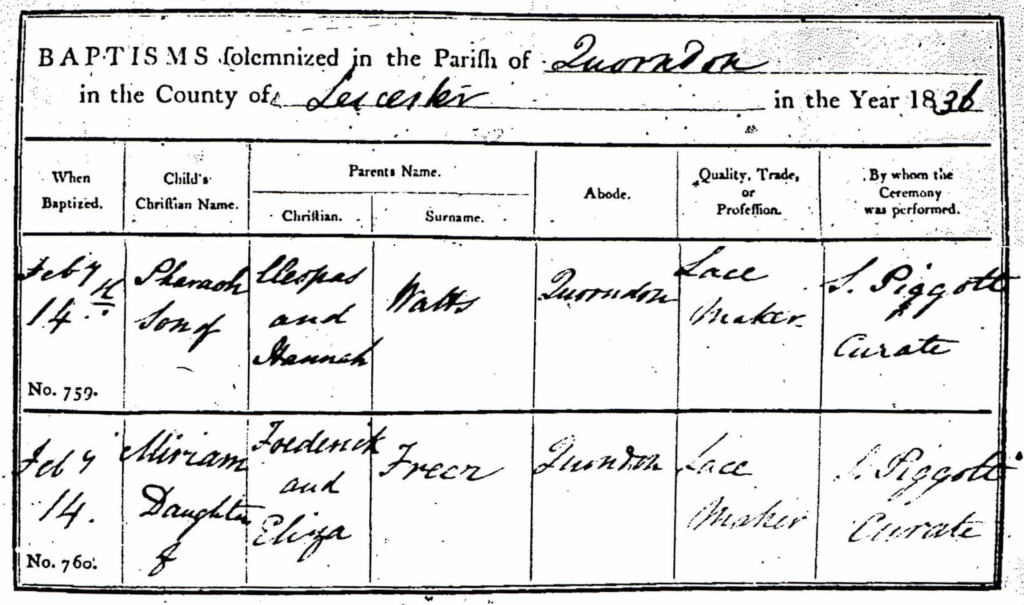 BAPTISMS solemnized in the Parish of Quorndon
in the County of Leicester in the Year 1836
When Baptized.
Child's Christian Name.
Parents Name.
Christian.
Surname.
Abode.
Quality, Trade, or Profession.
By whom the Ceremony was performed.
Feby
14th
No. 759.
Pharaoh
Son of
Cleopas
and
Hannah
Watts
Quorndon
Lace
Maker
S. Piggott
Curate
Feby
14.
No. 760.
Miriam
Daughter
of
Frederick
and
Eliza
Freer
Quorndon
Lace
Maker
S. Piggott
Curate